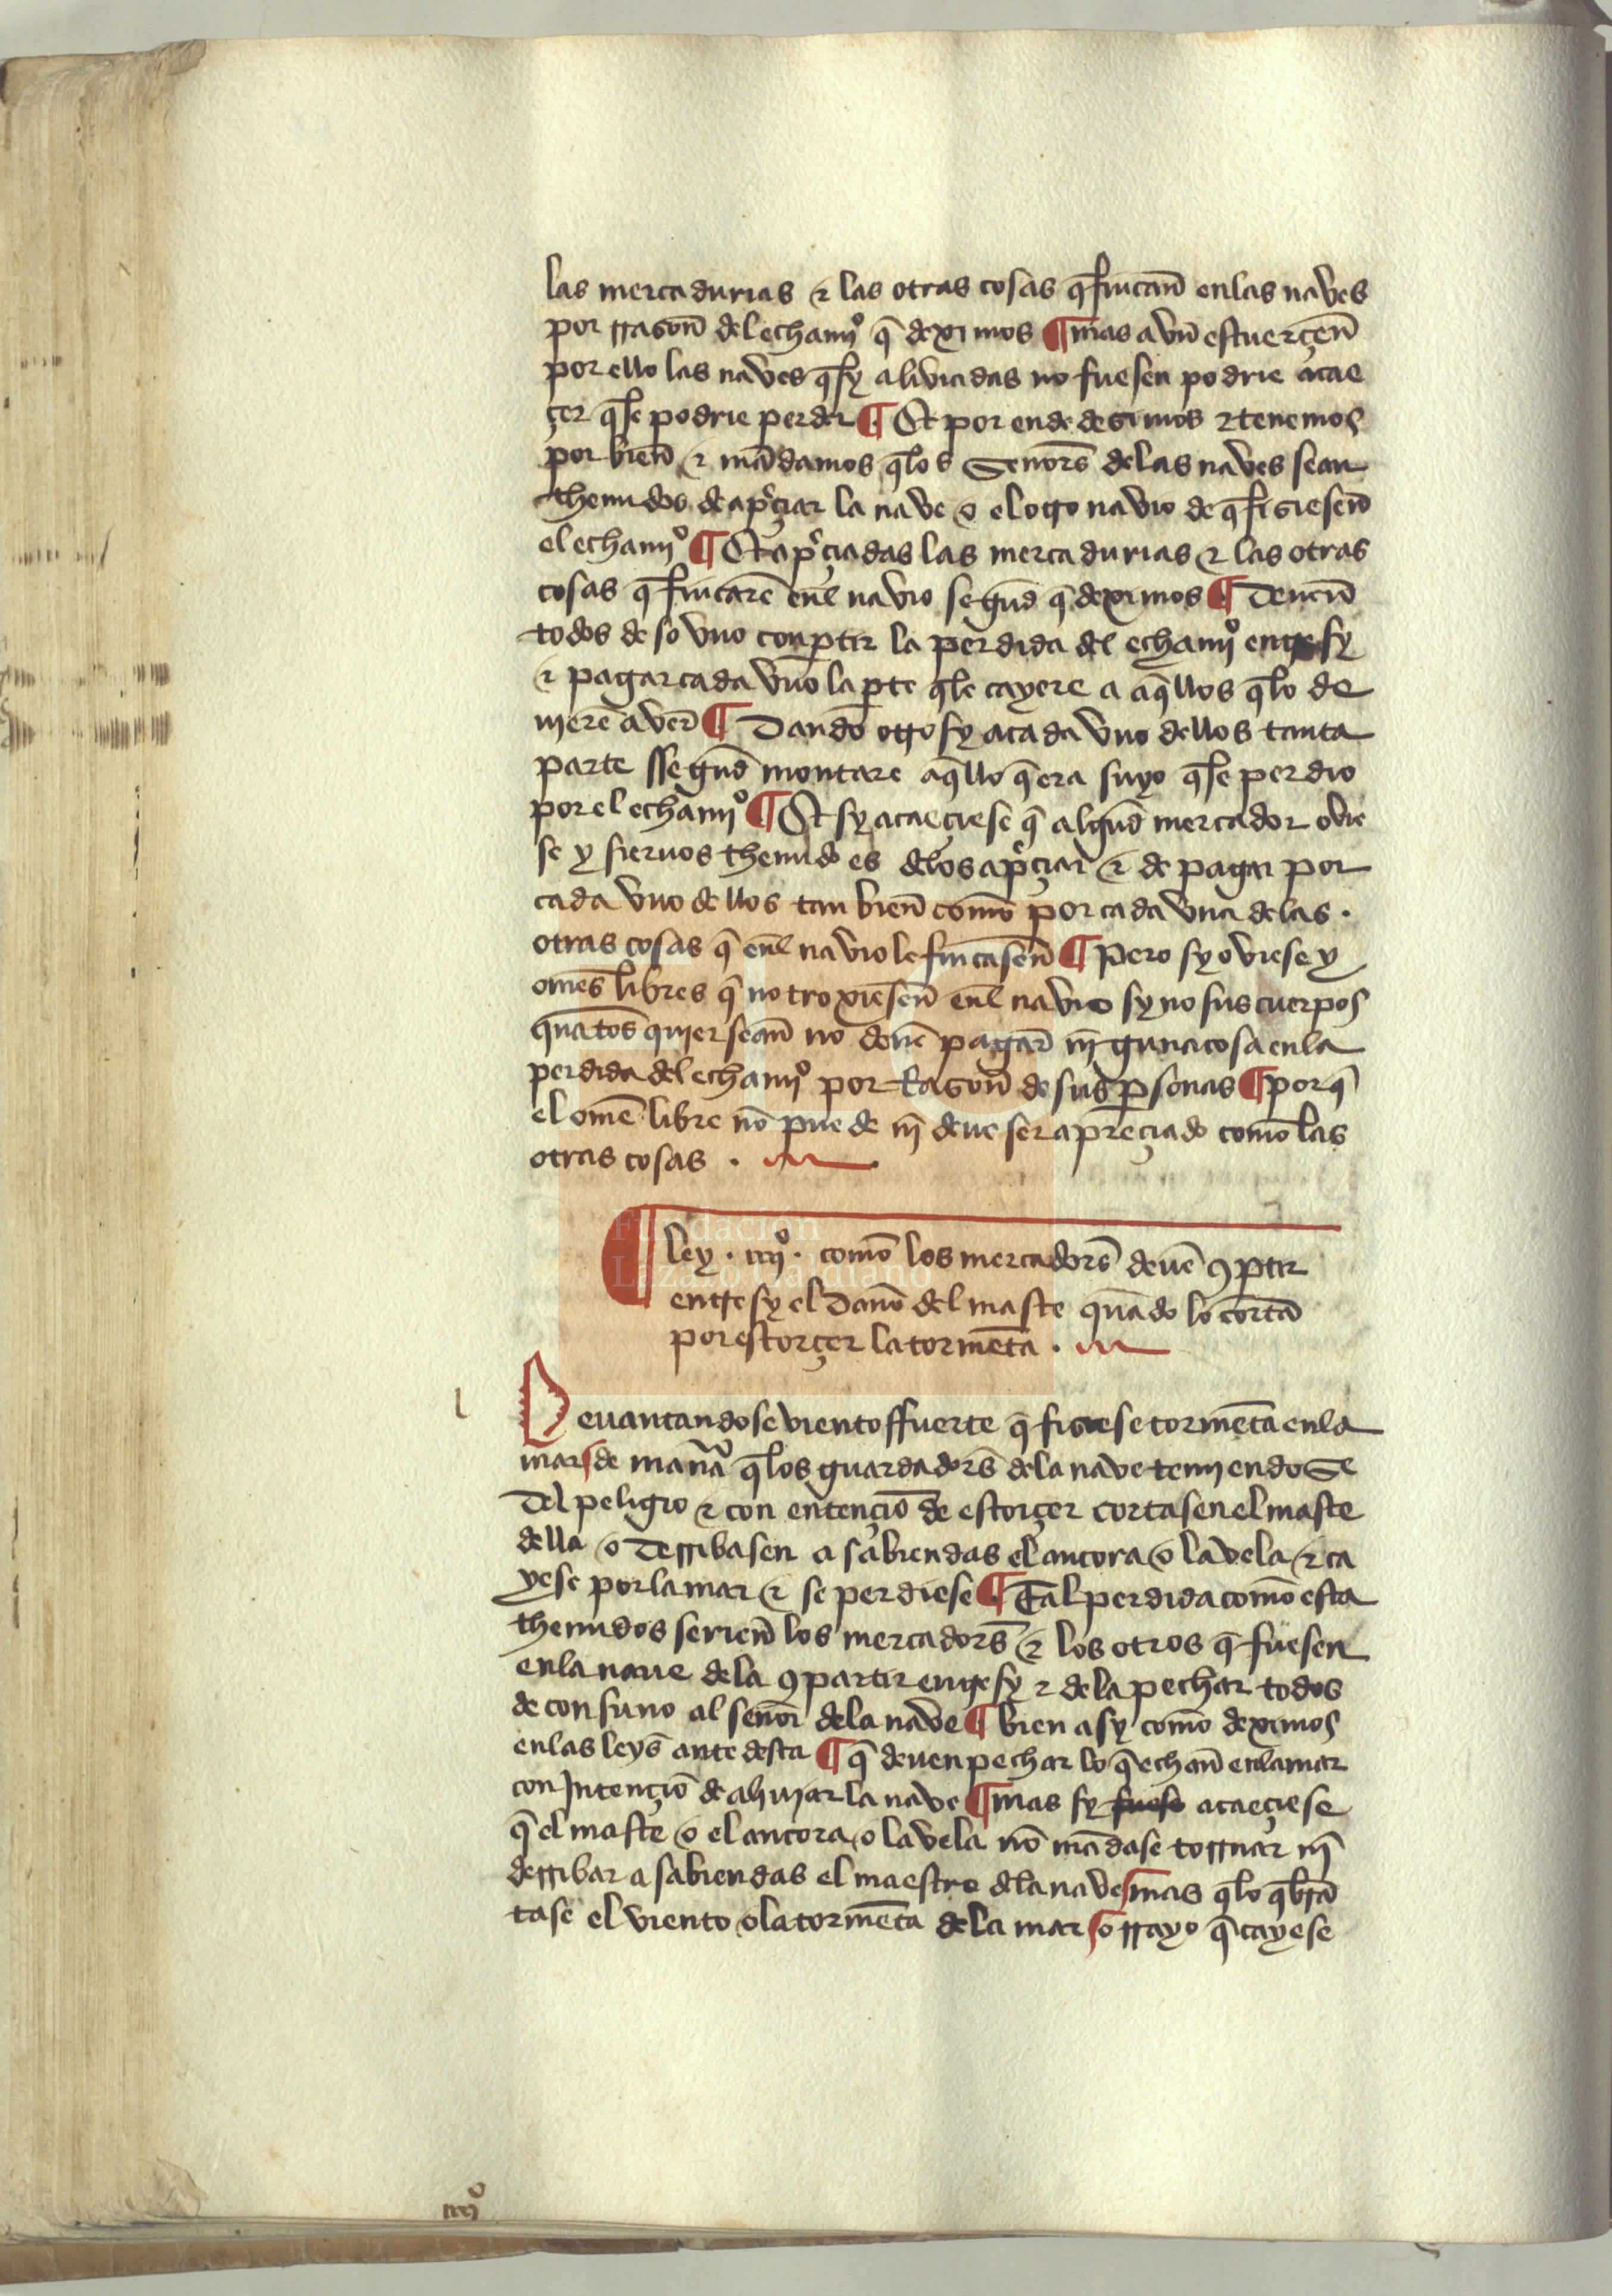 las mercadurias & las otras cosas q̃ fincañ enlas naves
por rrasoñ del echamj̊ q̃ deximos ¶ mas avñ estuerçeñ
por ello las naves q̃ sy aliviadas no fuesen podrie acae
çer q̃ se podrie perder ¶ Et por ende desimos & tenemos
por bieñ & mãdamos q̃ los Senors̃ delas naves sean
thenudos de ap̃çiar la nave o el otro navio de q̃ fisieseñ
el echamj̊ ¶ Et ap̃çiadas las mercadurias & las otras
cosas q̃ fincarẽ enl̃ navio segũd q̃ deximos ¶ Deueñ
todos de so vno conꝑtir la perdida del echamj̊ entre sy
& pagar cada vno la ꝑte q̃ le cayere a aq̃llos q̃ lo de
uierẽ aver̃ ¶ Dando otrosy a cada vno dellos tanta
parte ssegũd montare aq̃llo q̃ era suyo q̃ se perdio
por el echamj̊ ¶ Et sy acaeçiese q̃ algũd mercador ovie
se y sieruos thenudo es delos ap̃çiar & de pagar por
cada vno dellos tan bieñ comõ por cada vna delas .
otras cosas q̃ enl̃ navio le fincaseñ ¶ Pero sy oviese y
omẽs libres q̃ no troxieseñ enl̃ navio sy no sus cuerpos
quãtos quier seañ no deuẽ pagar̃ nj̃guna cosa enla
perdida del echamj̊ por Rasoñ de sus ꝑsonas ¶ por q̃
el omẽ libre nõ puede nj̃ deue ser apreçiado comõ las
otras cosas .
¶ ley . iiij̊ . comõ los mercadors̃ deuẽ ꝯꝑtir
entre sy el dano del maste quãdo lo cortã
por estorçer la tormẽta .
l
Levantandose viento ffuerte q̃ fisiese tormẽta enla
mar de manã q̃ los guardadors̃ dela nave temjendose
Del peligro & con entençiõ de estorçer cortasen el maste
della o Derribasen a sabiendas el ancora o la vela & ca
yese por la mar & se perdiese ¶ Tal perdida comõ esta
thenudos serieñ los mercadors̃ & los otros q̃ fuesen
enla naue dela ꝯpartir entre sy & dela pechar todos
de consuno al señor dela nave ¶ bien asy comõ deximos
enlas leys̃ ante desta ¶ q̃ deuen pechar lo q̃ echañ enla mar
con Intençiõ de aliuiar la nave ¶ mas sy fuese acaeçiese
q̃ el maste o el ancora o la vela nõ mãdase torrnar nj̃
derribar a sabiendas el maestro dela nave mas q̃ lo q̃brã
tase el viento o la tormẽta dela mar o rrayo q̃ cayese
iiij̊
Fundación
Lázaro Galdiano